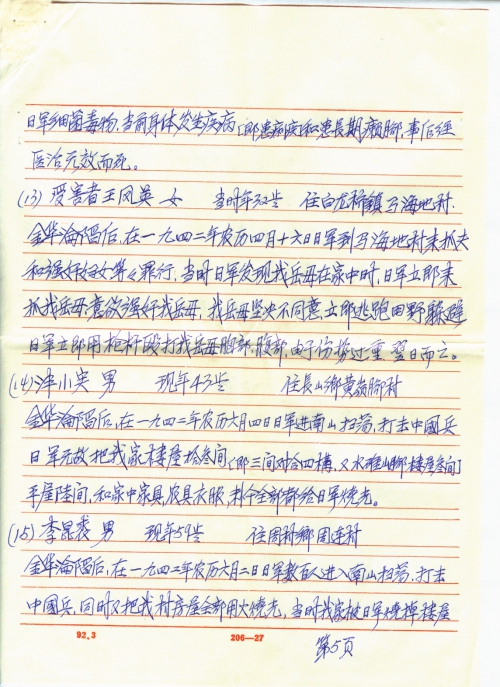 日军细菌毒物,当前身体发生疾病[即患痢疾和患長期癞脚,事后经
医治无效而死。
(13) 受害者王凤英 女 当时年32岁 住白龙桥镇马海地村.
金华淪陷后,在一九四二年农历四月十六日日军到马海地村来抓夫
和强奸妇女等々罪行,当时日军发现我岳母在家中时,日军立即来
抓我岳母,意欲强奸我岳母,我岳母坚决不同意立即逃跑田野躲避
日军立即用枪杆殴打我岳母胸部,腹部,由于伤势过重 翌日而亡。
(14) 小 男 现年43岁 住長山鄉黄嶺脚村
金华淪陷后,在一九四二年农历六月四日日军进南山扫荡,打击中國兵
日军无故把我家楼屋拾叁间[即三间对合四横,又水碓山脚楼屋叁间]
平屋陸间,和家中家具,农具衣服,全部都给日军烧光。
(15) 李 男 现年59岁 住周村鄉周连村
金华淪陷后,在一九四二年农历六月二日日军数百人进入南山扫荡,打击
中國兵,同时又把我村房屋全部用火燒光,当时我家被日军燒掉楼屋
92.3 206-27
第5页